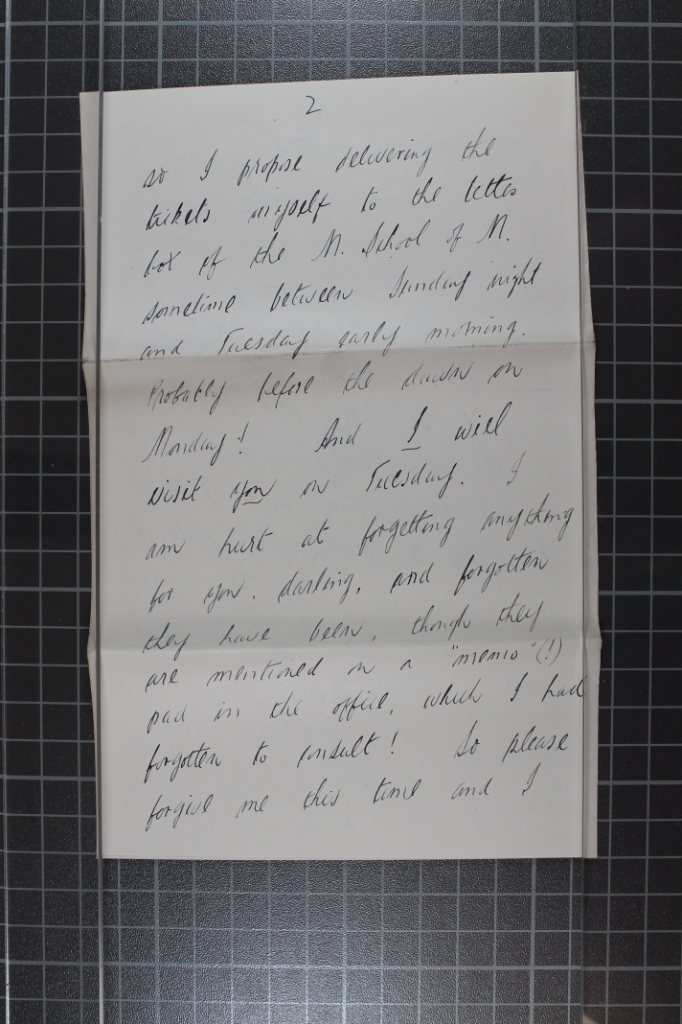 2
so I propose delivering the
tickets myself to the letter
box of the M. School of M.
sometime between Sunday night
and Tuesday early morning.
Probably before the dawn on
Monday! And I will
visit you on Tuesday. I
am hurt at forgetting anything
for you, darling, and forgotten
they have been, though they
are mentioned on a "memo" (!)
pad in the office, which I had
forgotten to consult! So please
forgive me this time and I